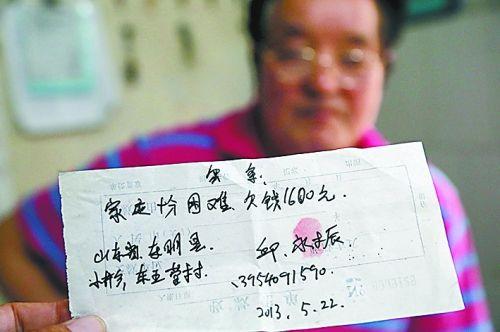 欠条.
家庭十分困难.欠钱1600元.
山东省.东明县.
小井乡,东
村.
邱
13954091590.
2013.5.22.